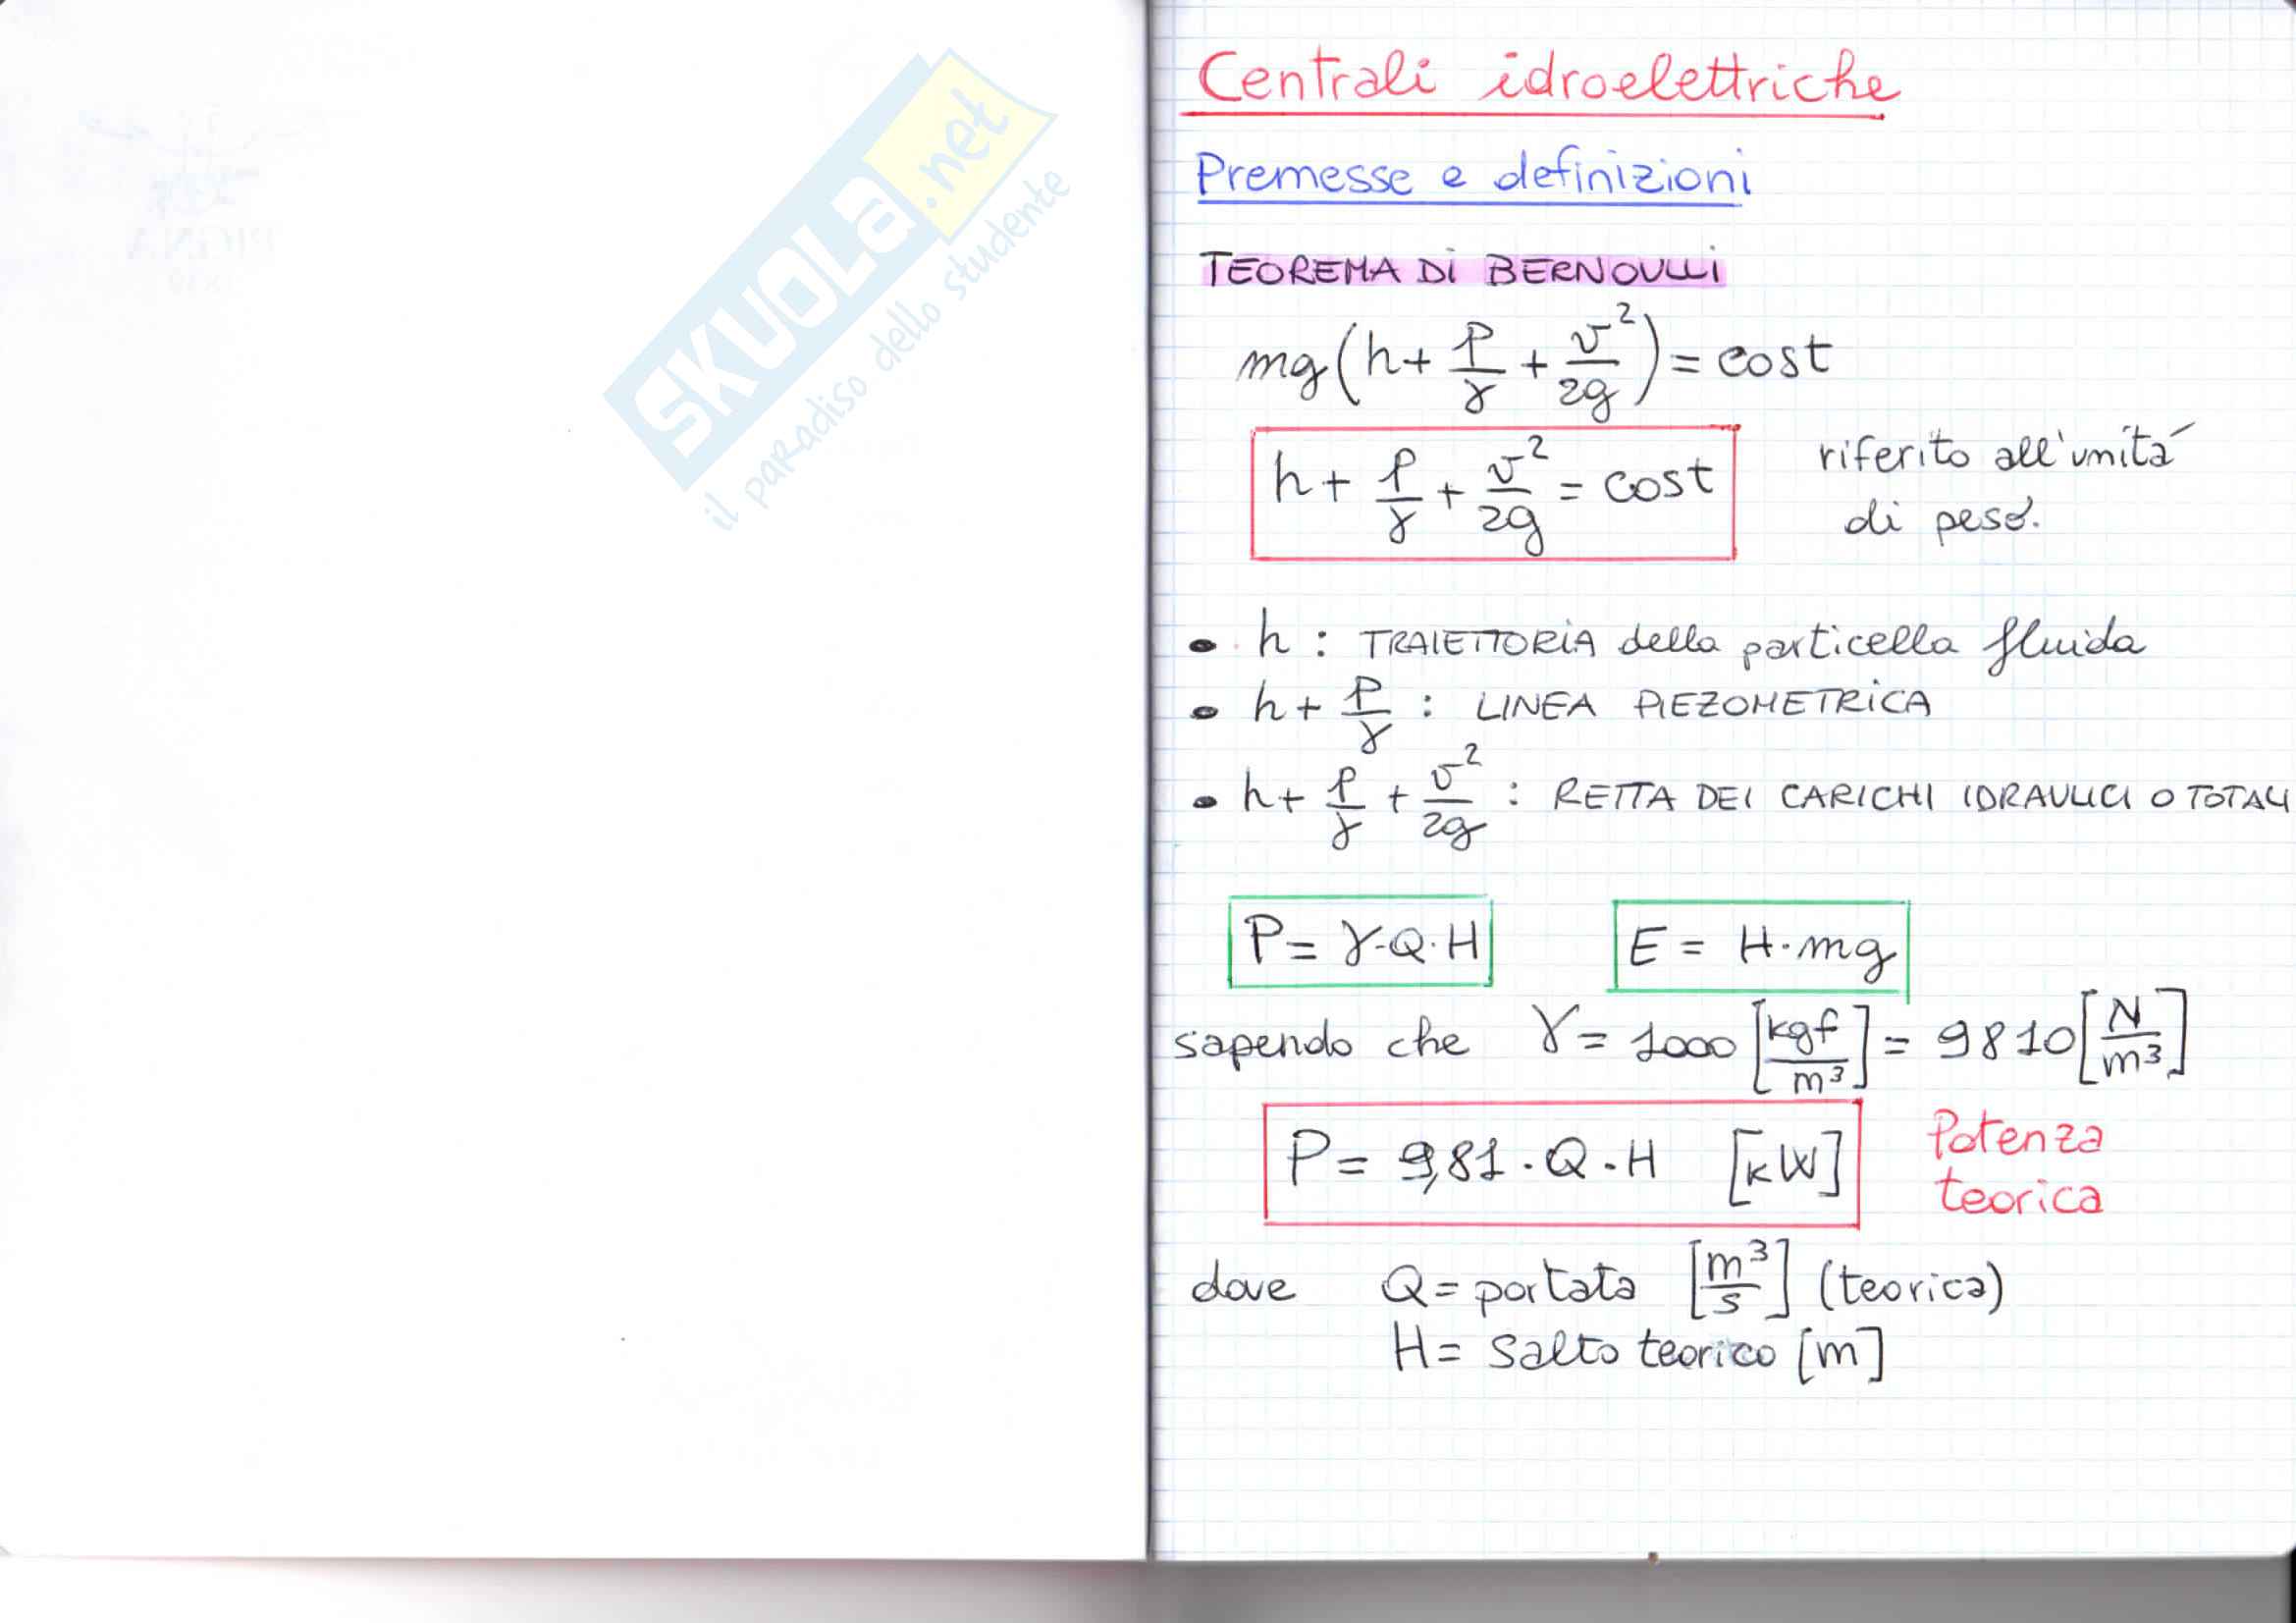 SKUOLA.net
il paradiso dello studente
Centrali idroelettriche
Premesse e definizioni
TEOREMA DI BERNOULLI
mg(h + p/γ + v²/2g) = cost
h + p/γ + v²/2g = cost riferito all'unità
di peso.
• h : TRAIETTORIA della particella fluida
• h + p/γ : LINEA PIEZOMETRICA
• h + p/γ + v²/2g : RETTA DEI CARICHI IDRAULICI O TOTALI
P = γ·Q·H E = H·mg
sapendo che γ = 1000 [kgf/m³] = 9810 [N/m³]
P = 9,81 · Q · H [kW] Potenza
teorica
dove Q = portata [m³/s] (teorica)
H = salto teorico [m]